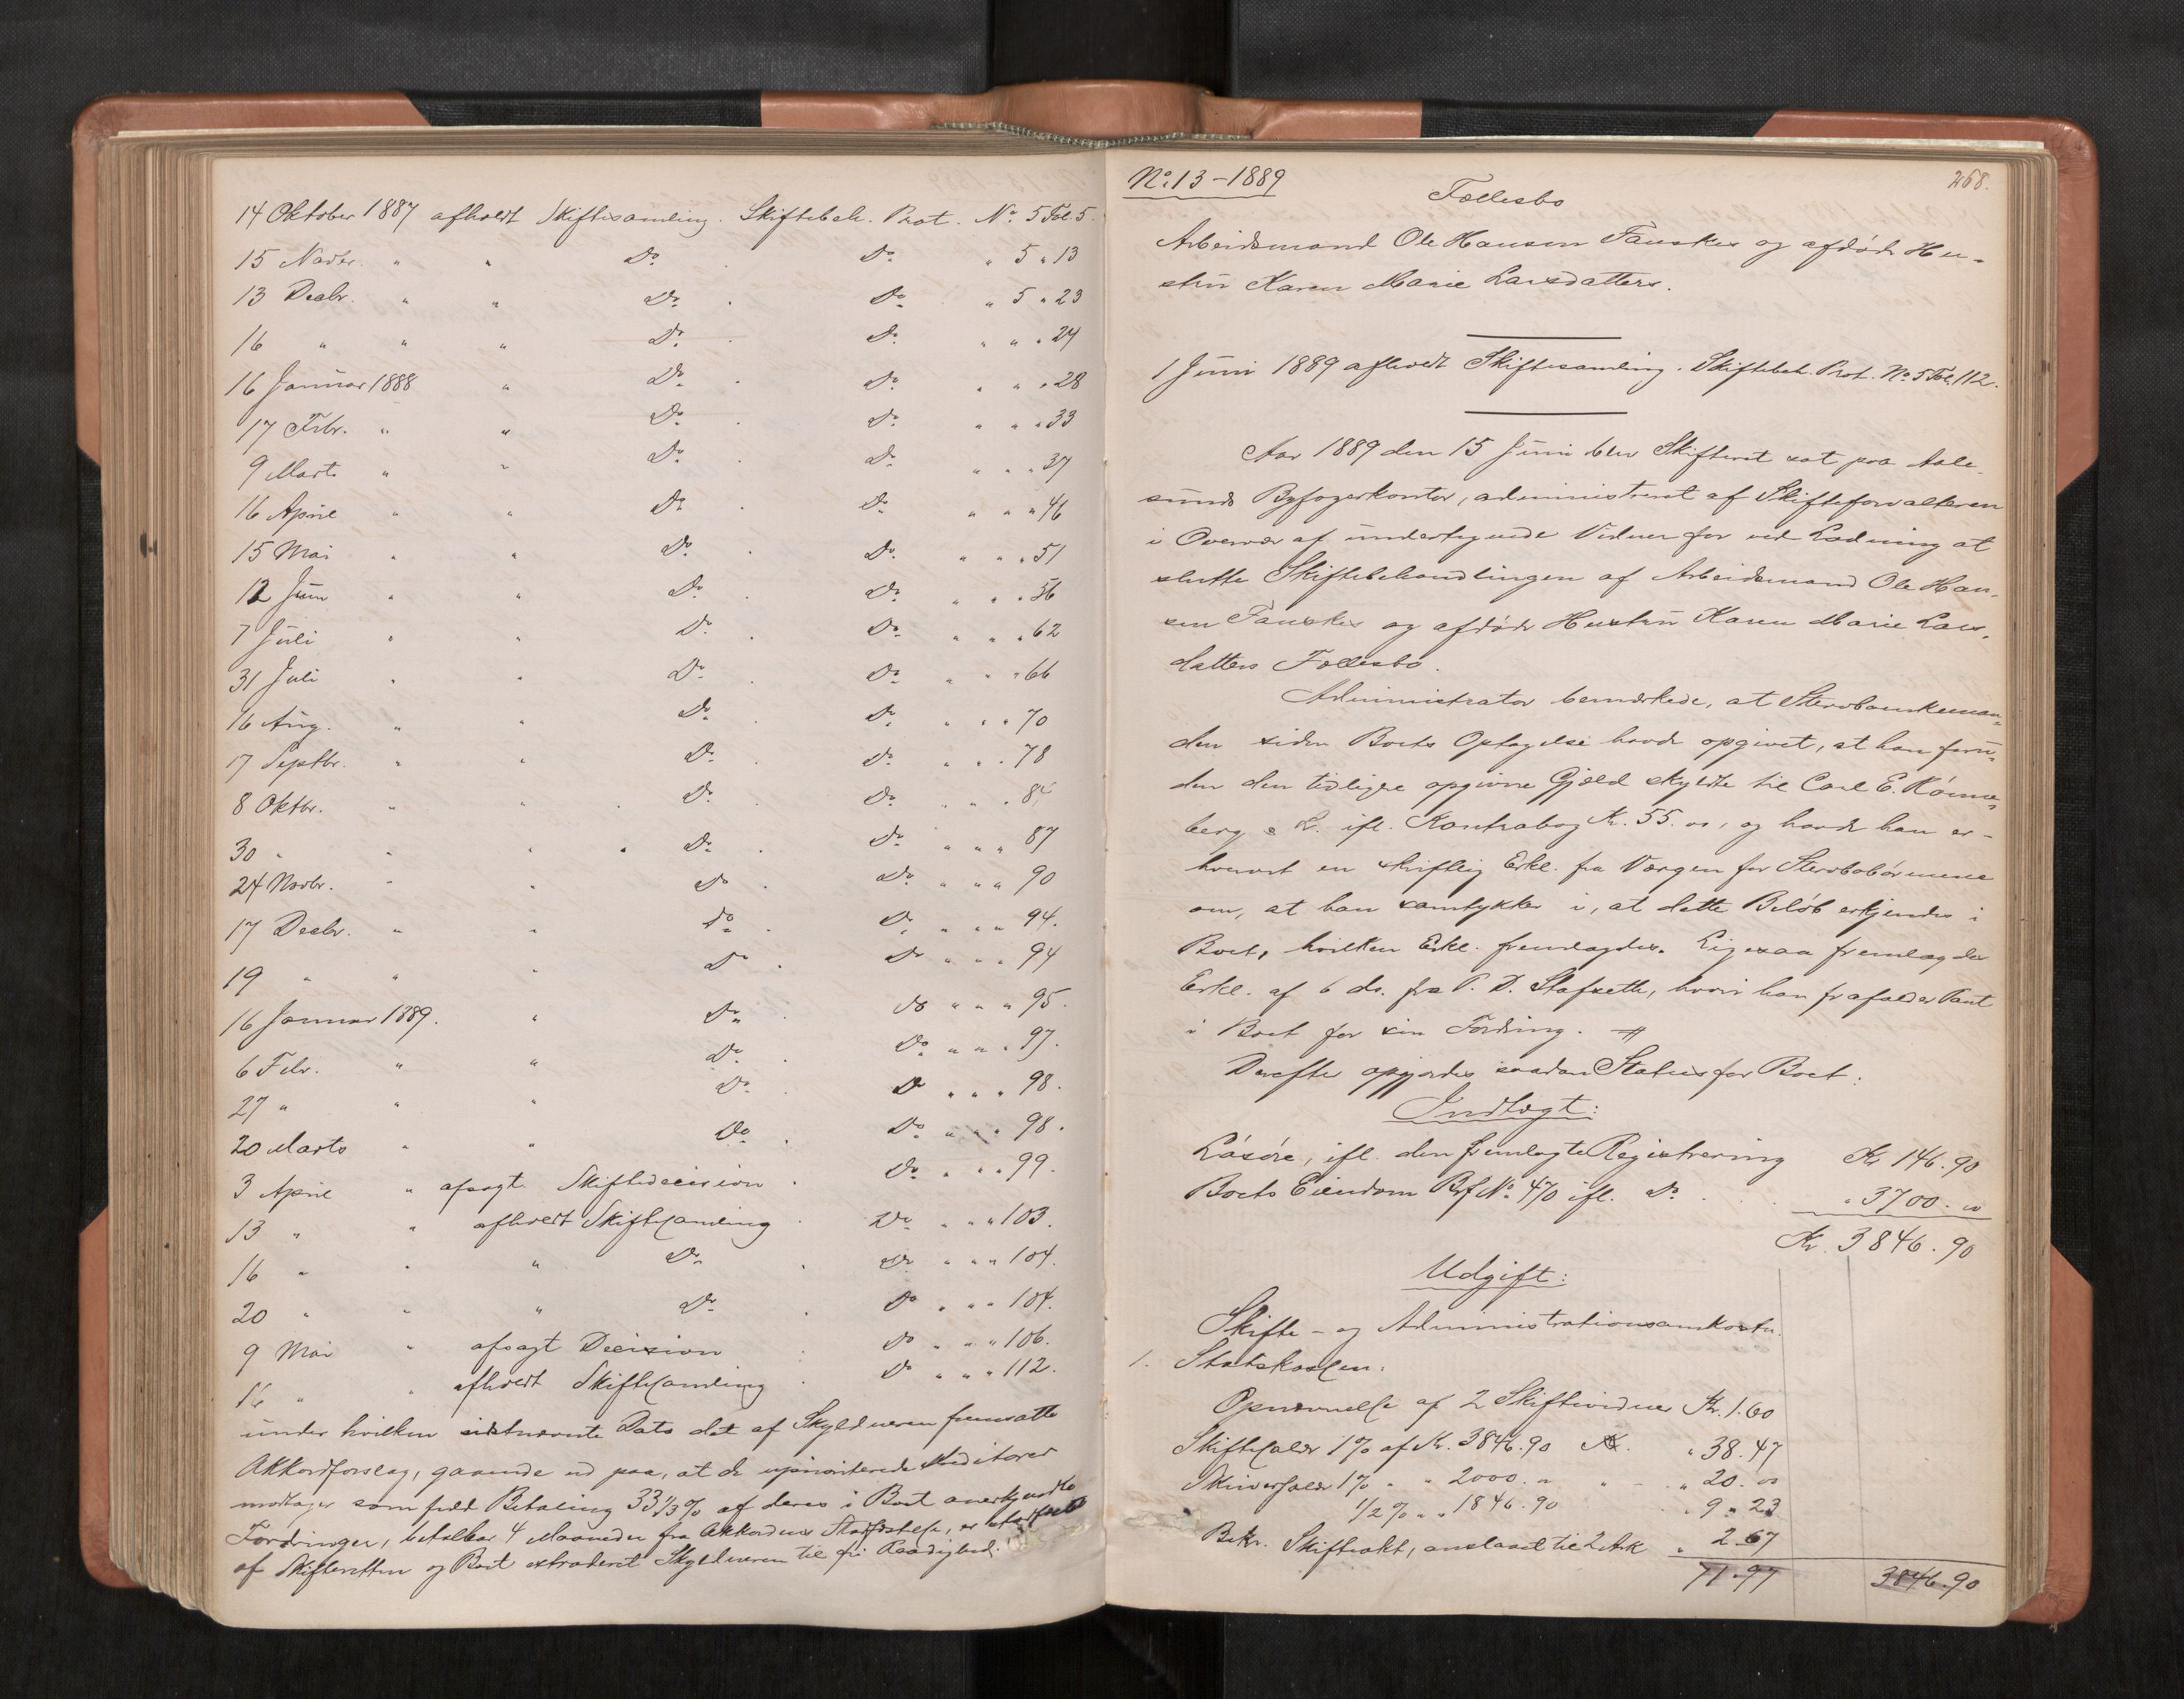 14 Oktober 1887 afholdt Skiftesamling. Skiftebeh. Prot. No. 5 Fol. 5.
15 Novbr. " " Do. Do. " 5 " 13
13 Decbr. " " Do. Do. " 5 " 23
16 " " " Do. Do. " " " 24
16 Januar 1888 " Do. Do. " " " 28
17 Febr. " " Do. Do. " " " 33
9 Marts " " Do. Do. " " " 37
16 April " " Do. Do. " " " 46
15 Mai " " Do. Do. " " " 51
12 Juni " " Do. Do. " " " 56
7 Juli " " Do. Do. " " " 62
31 Juli " " Do. Do. " " " 66
16 Aug. " " Do. Do. " " " 70
17 Septbr. " " Do. Do. " " " 78
8 Oktbr. " " Do. Do. " " " 84
30 " " " Do. Do. " " " 87
24 Novbr. " " Do. Do. " " " 90
17 Decbr. " " Do. Do. " " " 94.
19 " " " Do. Do. " " " 94
16 Januar 1889. " Do. Do. " " " 95.
6 Febr. " " Do. Do. " " " 97.
27 " " " Do. Do. " " " 98.
20 Marts " " Do. Do. " " " 98.
3 April " afsagt Skiftedecision. Do. " " " 99.
13 " " afholdt Skiftesamling Do. " " " 103.
16 " " " Do. Do. " " " 104.
20 " " " Do. Do. " " " 104.
9 Mai " afsagt Decision Do. " " " 106.
16 " " afholdt Skiftesamling Do. " " " 112.
under hvilken sidstnævnte Dato det af Skyldneren fremsatte
Akkordforslag, gaaende ud paa, at de uprioriterede Kreditorer
modtager som fuld Betaling 33 1/3 % af deres i Boet anerkjendte
Fordringer, betalbar 4 Maaneder fra Akkordens Stadfæstelse, er stadfæstet
af Skifteretten og Boet extraderet Skyldneren til fri Raadighed.
No. 13 - 1889
268.
Fællesbo
Arbeidsmand Ole Hansen Fauskes og afdøde Hu-
stru Karen Marie Larsdatters.
1 Juni 1889 afholdt Skiftesamling. Skiftebeh. Prot. No. 5 Fol. 112.
Aar 1889 den 15 Juni blev Skifteret sat paa Aale-
sunds Byfogerkontor, administreret af Skifteforvalteren
i Overvær af undertegnede Vidner for ved Lodning at
slutte Skiftebehandlingen af Arbeidsmand Ole Han-
sen Fauskes og afdøde Hustru Karen Marie Lars-
datters Fællesbo.
Administrator bemærkede, at Stervboenkeman-
den siden Boets Optagelse havde opgivet, at han foru-
den den tidligere opgivne Gjæld skyldte til Carl E. Rønne-
berg & S. ifl. Kontrabog Kr. 55.00, og havde han er-
hvervet en skriftlig Erkl. fra Værgen for Stervbobørnene
om, at han samtykker i, at dette Beløb erkjendes i
Boet, hvilken Erkl. fremlagdes. Ligesaa fremlagdes
Erkl. af 6 ds. fra P. D. Stafseth, hvori han frafalder Pant
i Boet for sin Fordring.
Derefter opgjordes saadan Status for Boet:
Indtægt:
Løsøre, ifl. den fremlagte Registrering Kr 146.90
Boets Eiendom Brf No. 470 ifl. Do. " 3700.00
Kr. 3846.90
Udgift:
Skifte- og Administrationsomkostn.
1. Statskassen:
Opnævnelse af 2 Skiftevidner Kr. 1.60
Skiftesalær 1% af Kr. 3846.90 Kr. " 38.47
Skriversalær 1% " " 2000. " " " 20.00
1/2% " " 1846.90 " 9 " 23
Bekr. Skifteakt, anslaaet til 2 Ark " 2.67
71.97 3846.90